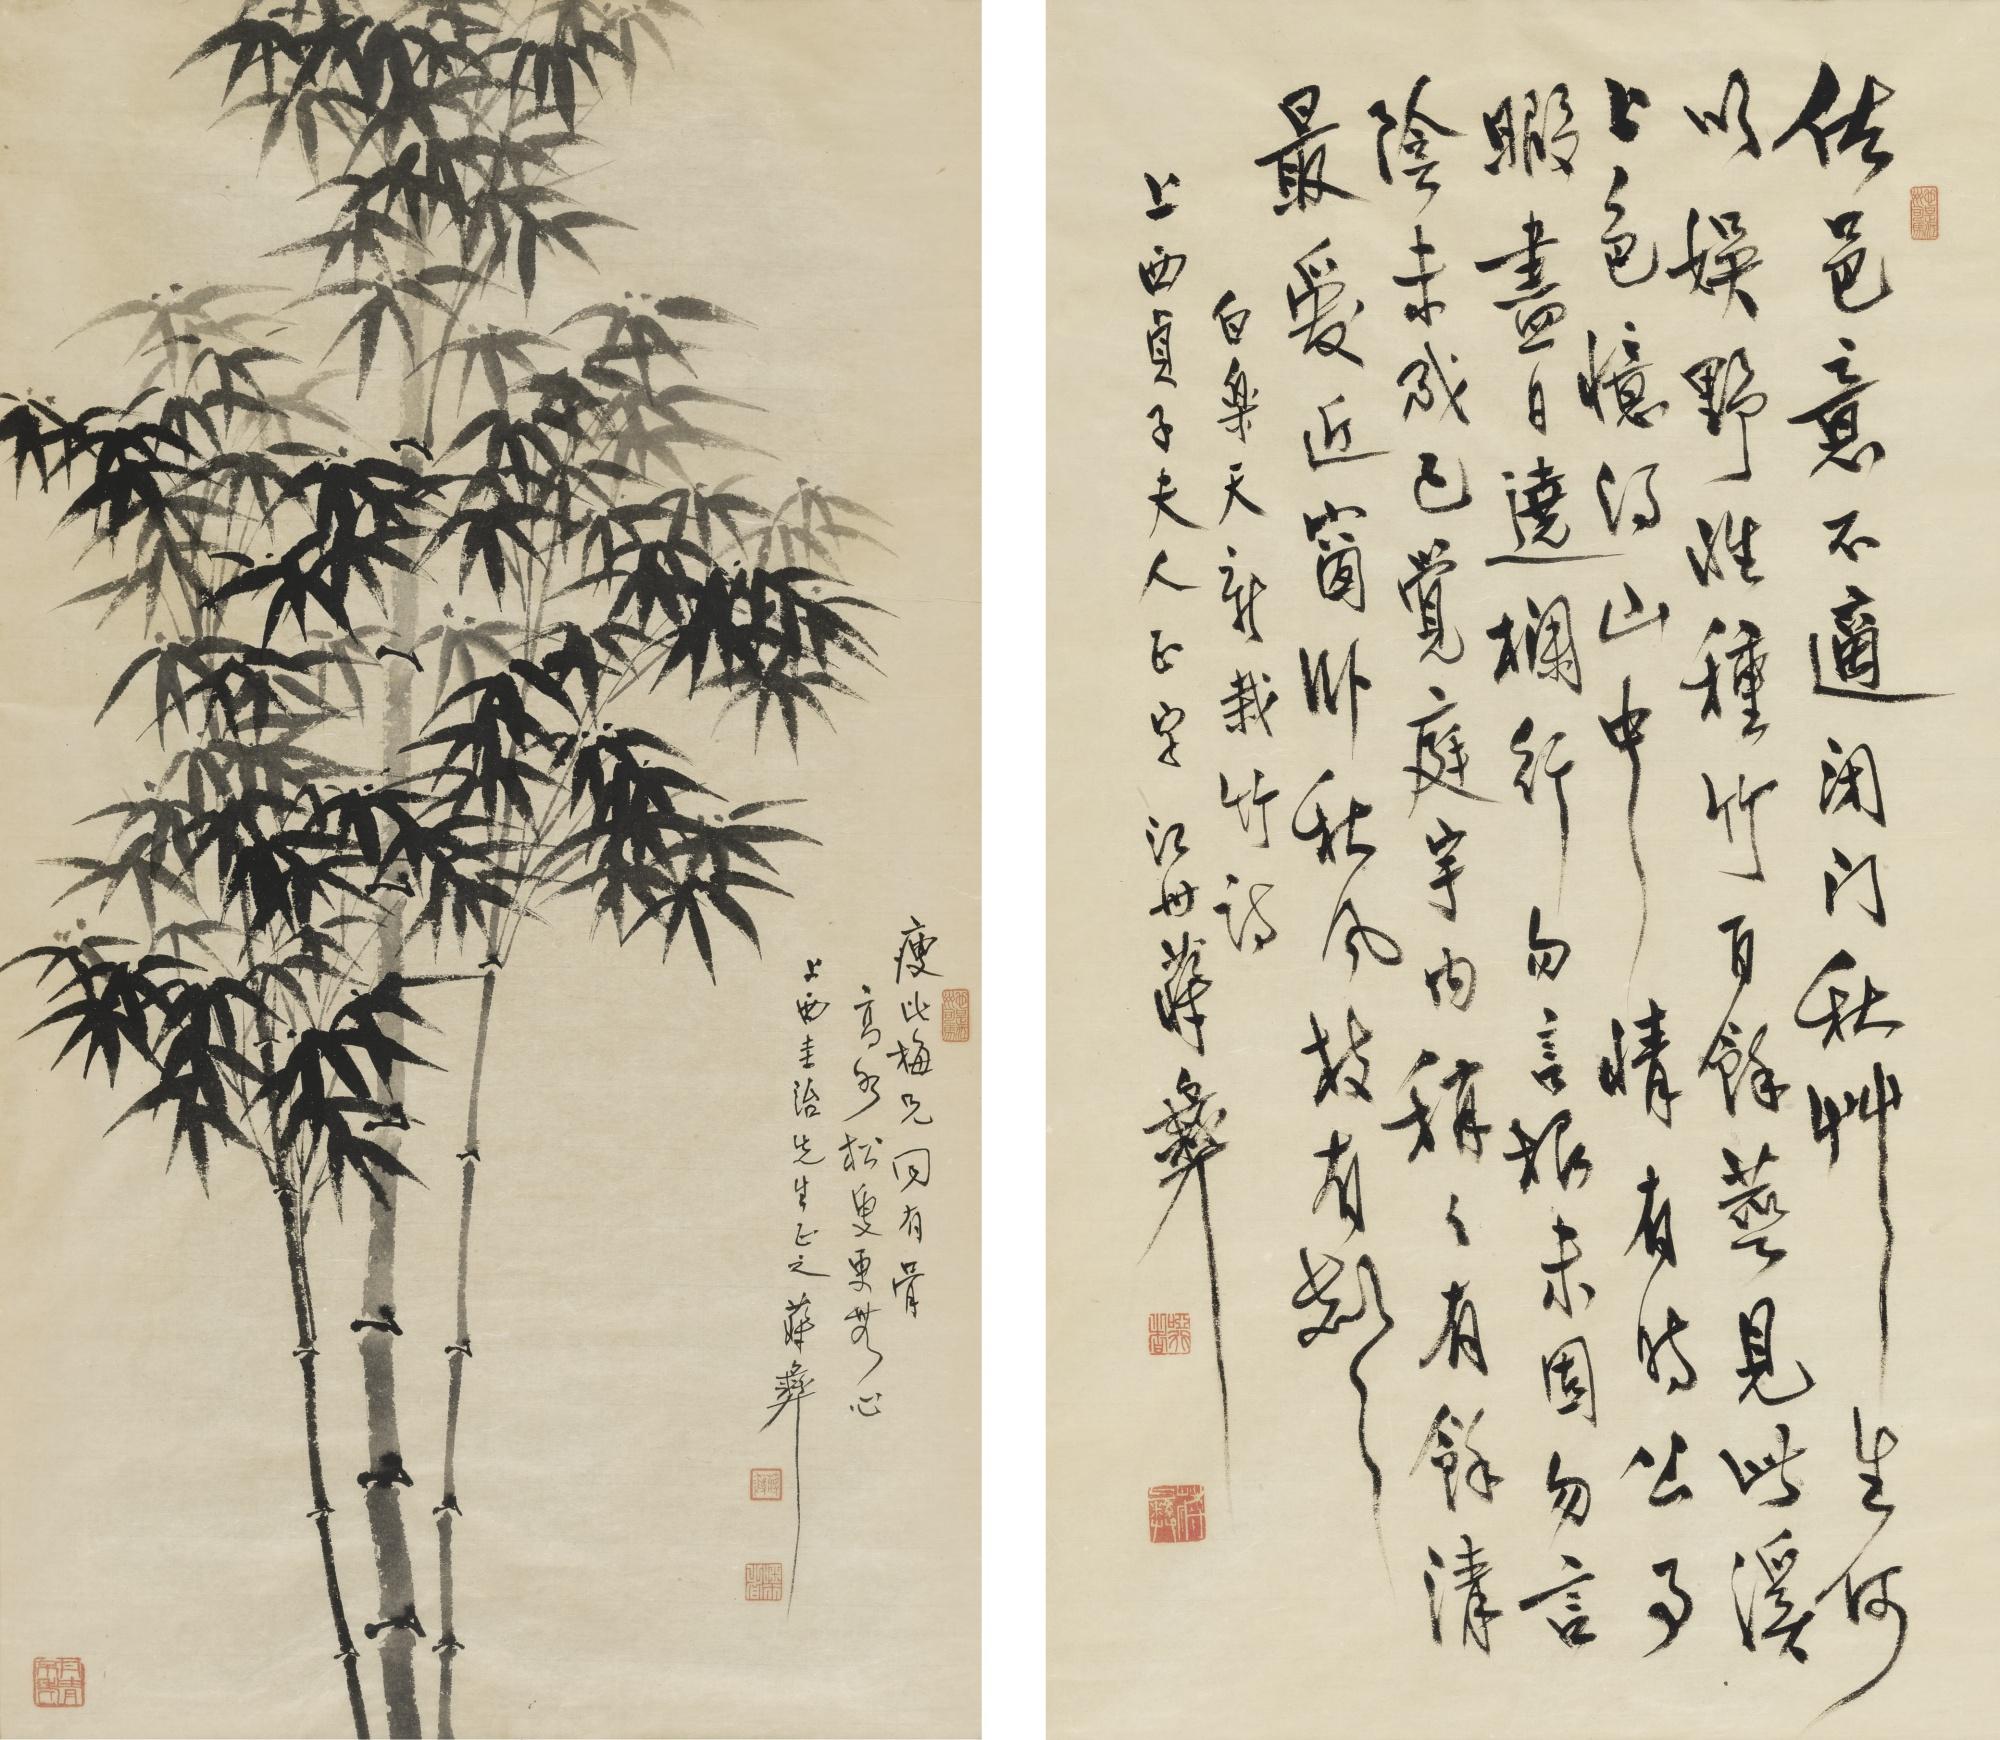 瘦比梅兄同有骨
高於松叟更無心
上西圭治先生正之 蔣彝
佐邑意不適閉門秋艸生何
以娛野性種竹百餘莖見此溪
上色憶得山中情有時公事
暇盡日遶欄行勿言根未固勿言
陰未成已覺庭宇內稍〻有餘清
最愛近窗臥秋風枝有聲
白樂天新栽竹詩
上西貞子夫人正字 江州蔣彝
蔣彝